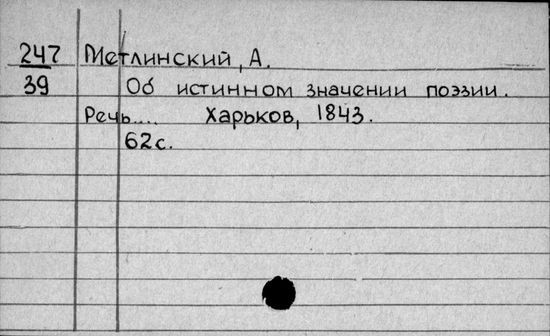 247 Метлинский, А.
39 Об истинном значении поэзии.
Речь.... Харьков, 1843.
62с.